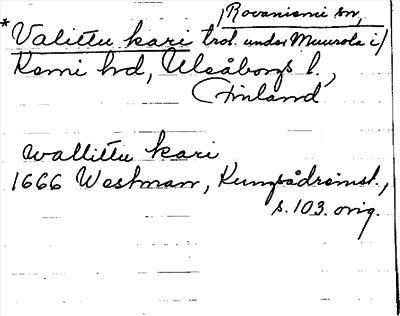 Rovaniemi sn,
*Valittu kari trol. under Muurola i/
Kemi hrd, Uleåborgs l.,
Finland
Wallittu kari
1666 Westman, Kungsådreinst.,
s. 103. orig.